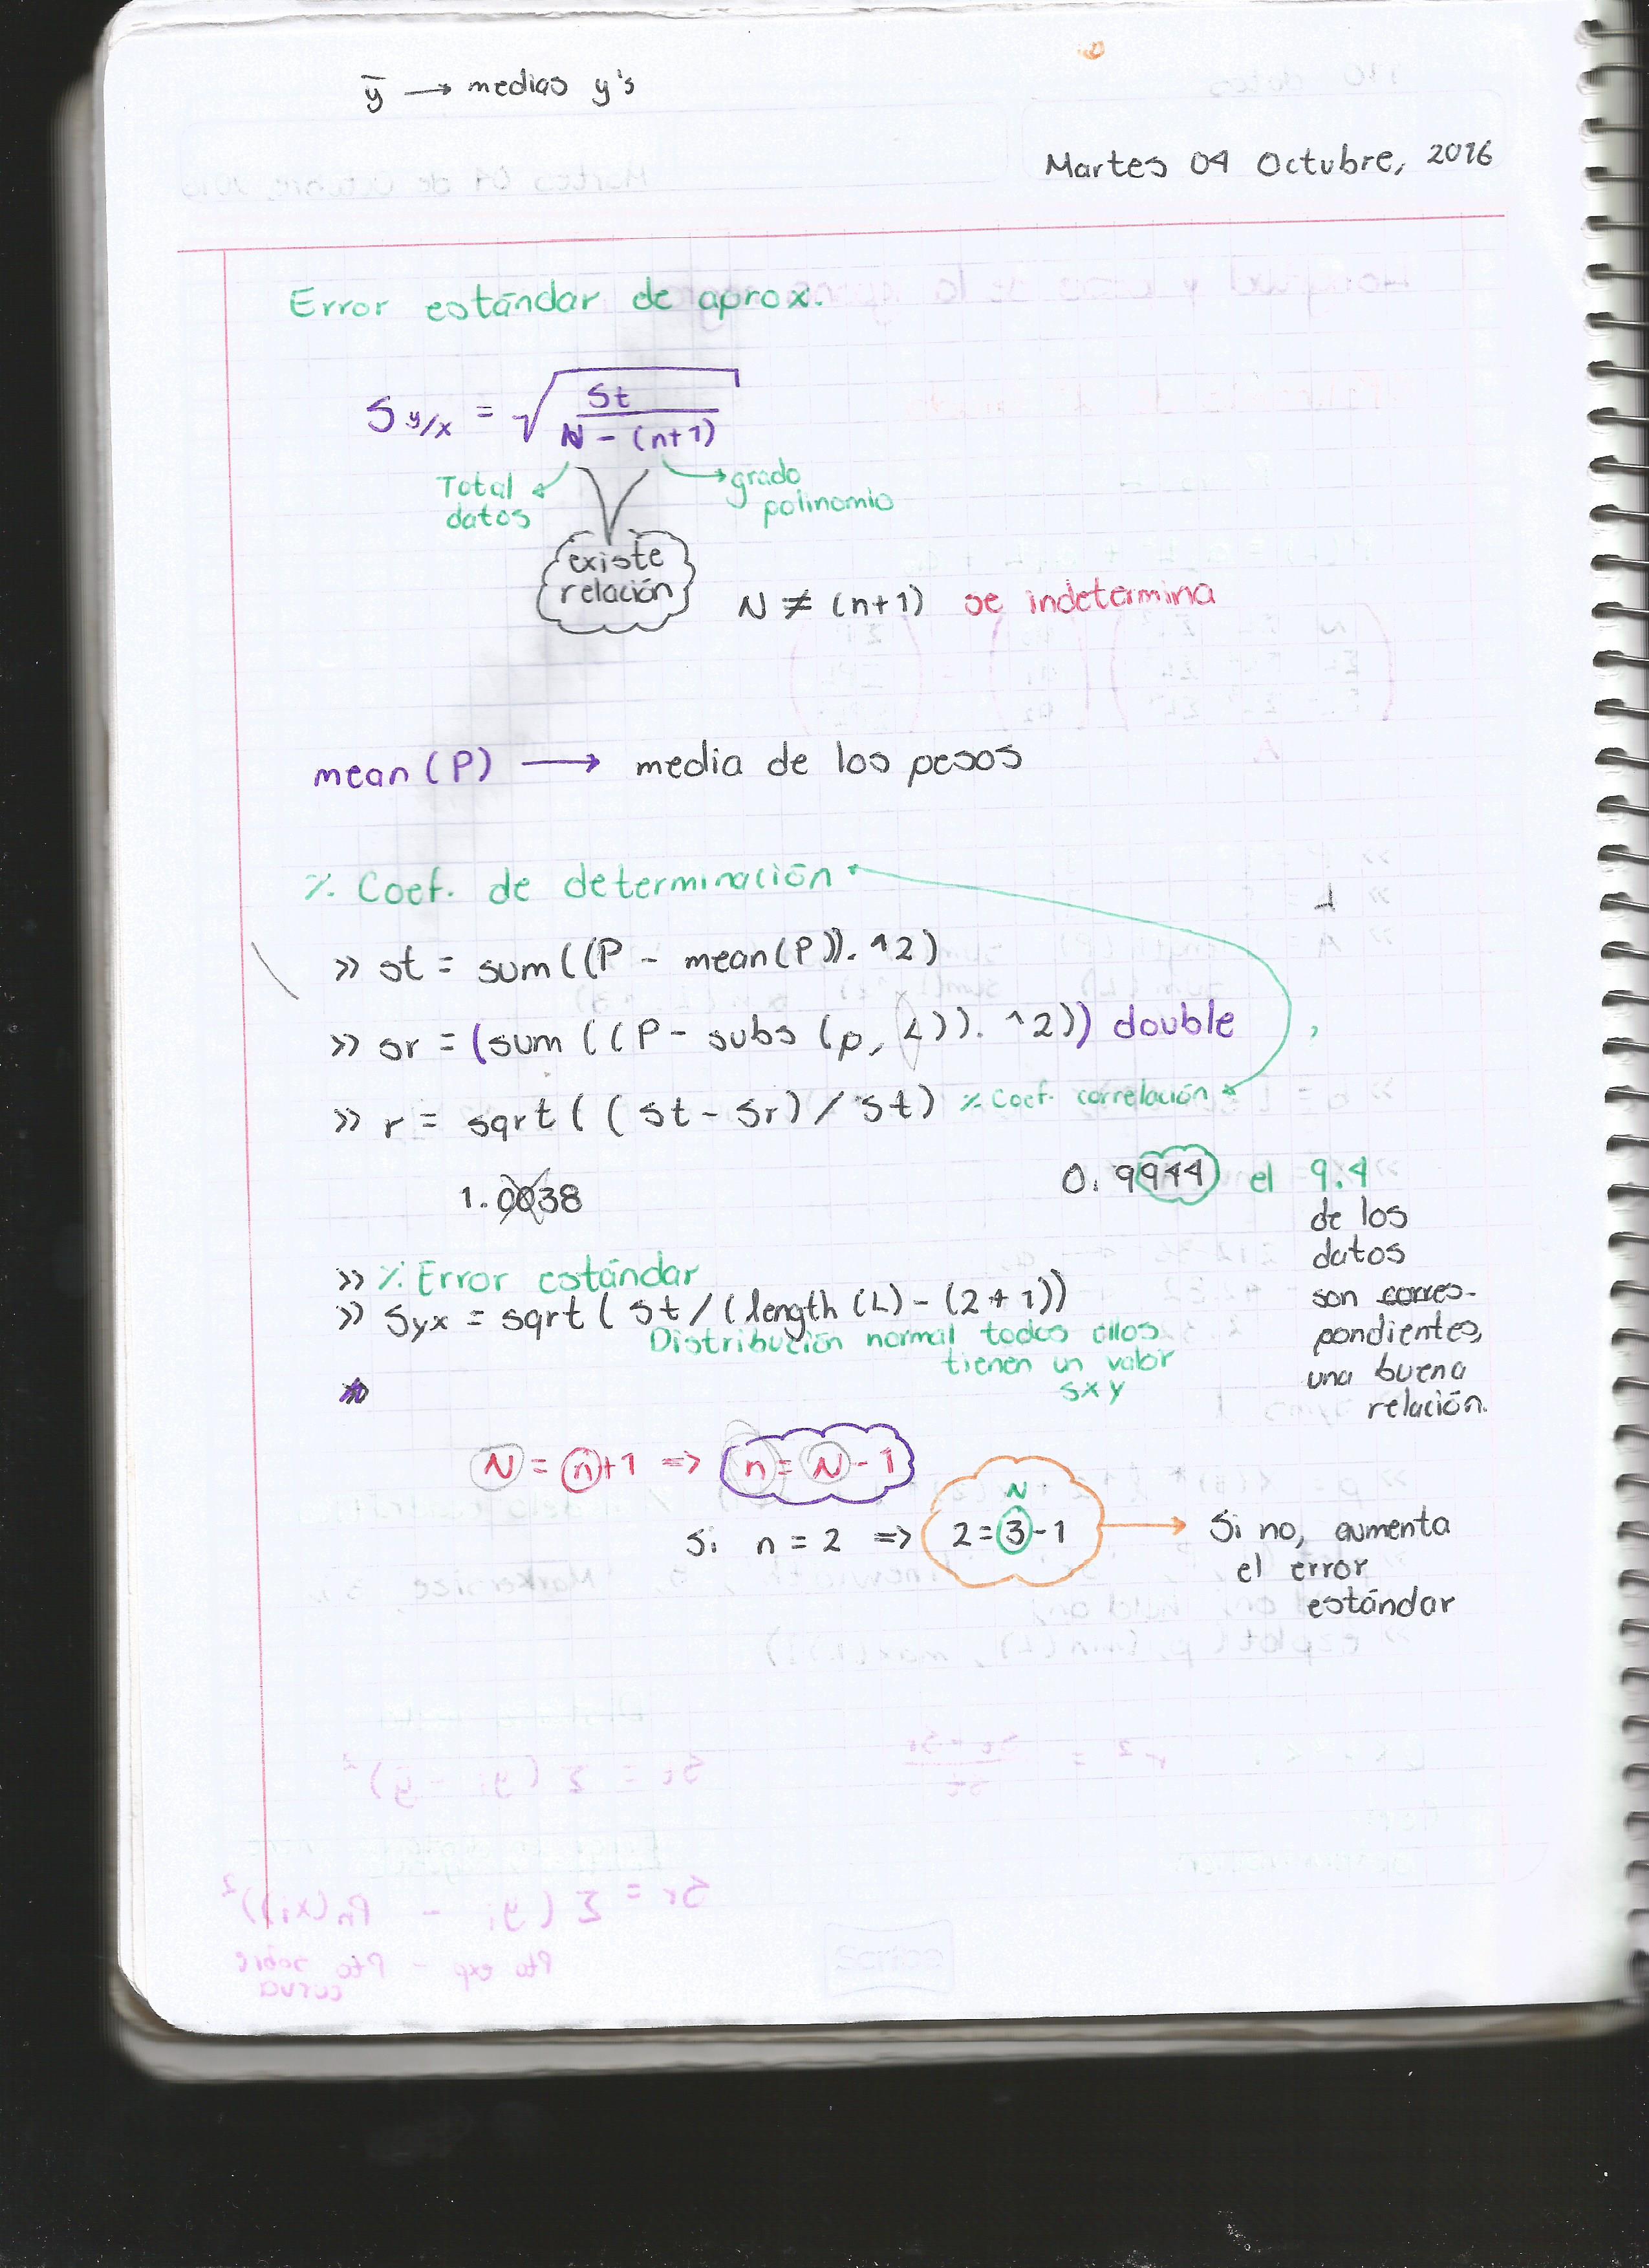 ȳ → medias y's
Martes 04 Octubre, 2016
Error estándar de aprox.
S y/x = √ St / N - (n+1)
Total datos
grado polinomio
existe relación
N ≠ (n+1) se indetermina
mean(P) → media de los pesos
% Coef. de determinación
>> st = sum((P - mean(P)).^2)
>> sr = (sum ((P - subs (p, L)).^2)) double
>> r = sqrt((st-sr)/st) % Coef. correlación
1.0038
0.9944 el 9.4
de los
datos
son corres-
pondientes,
una buena
relación.
>> % Error estándar
>> Syx = sqrt(st/(length(L)-(2+1))
Distribución normal todos ellos
tienen un valor
sxy
N = n+1 => n = N-1
N
Si n = 2 => 2 = 3-1 → Si no, aumenta
el error
estándar